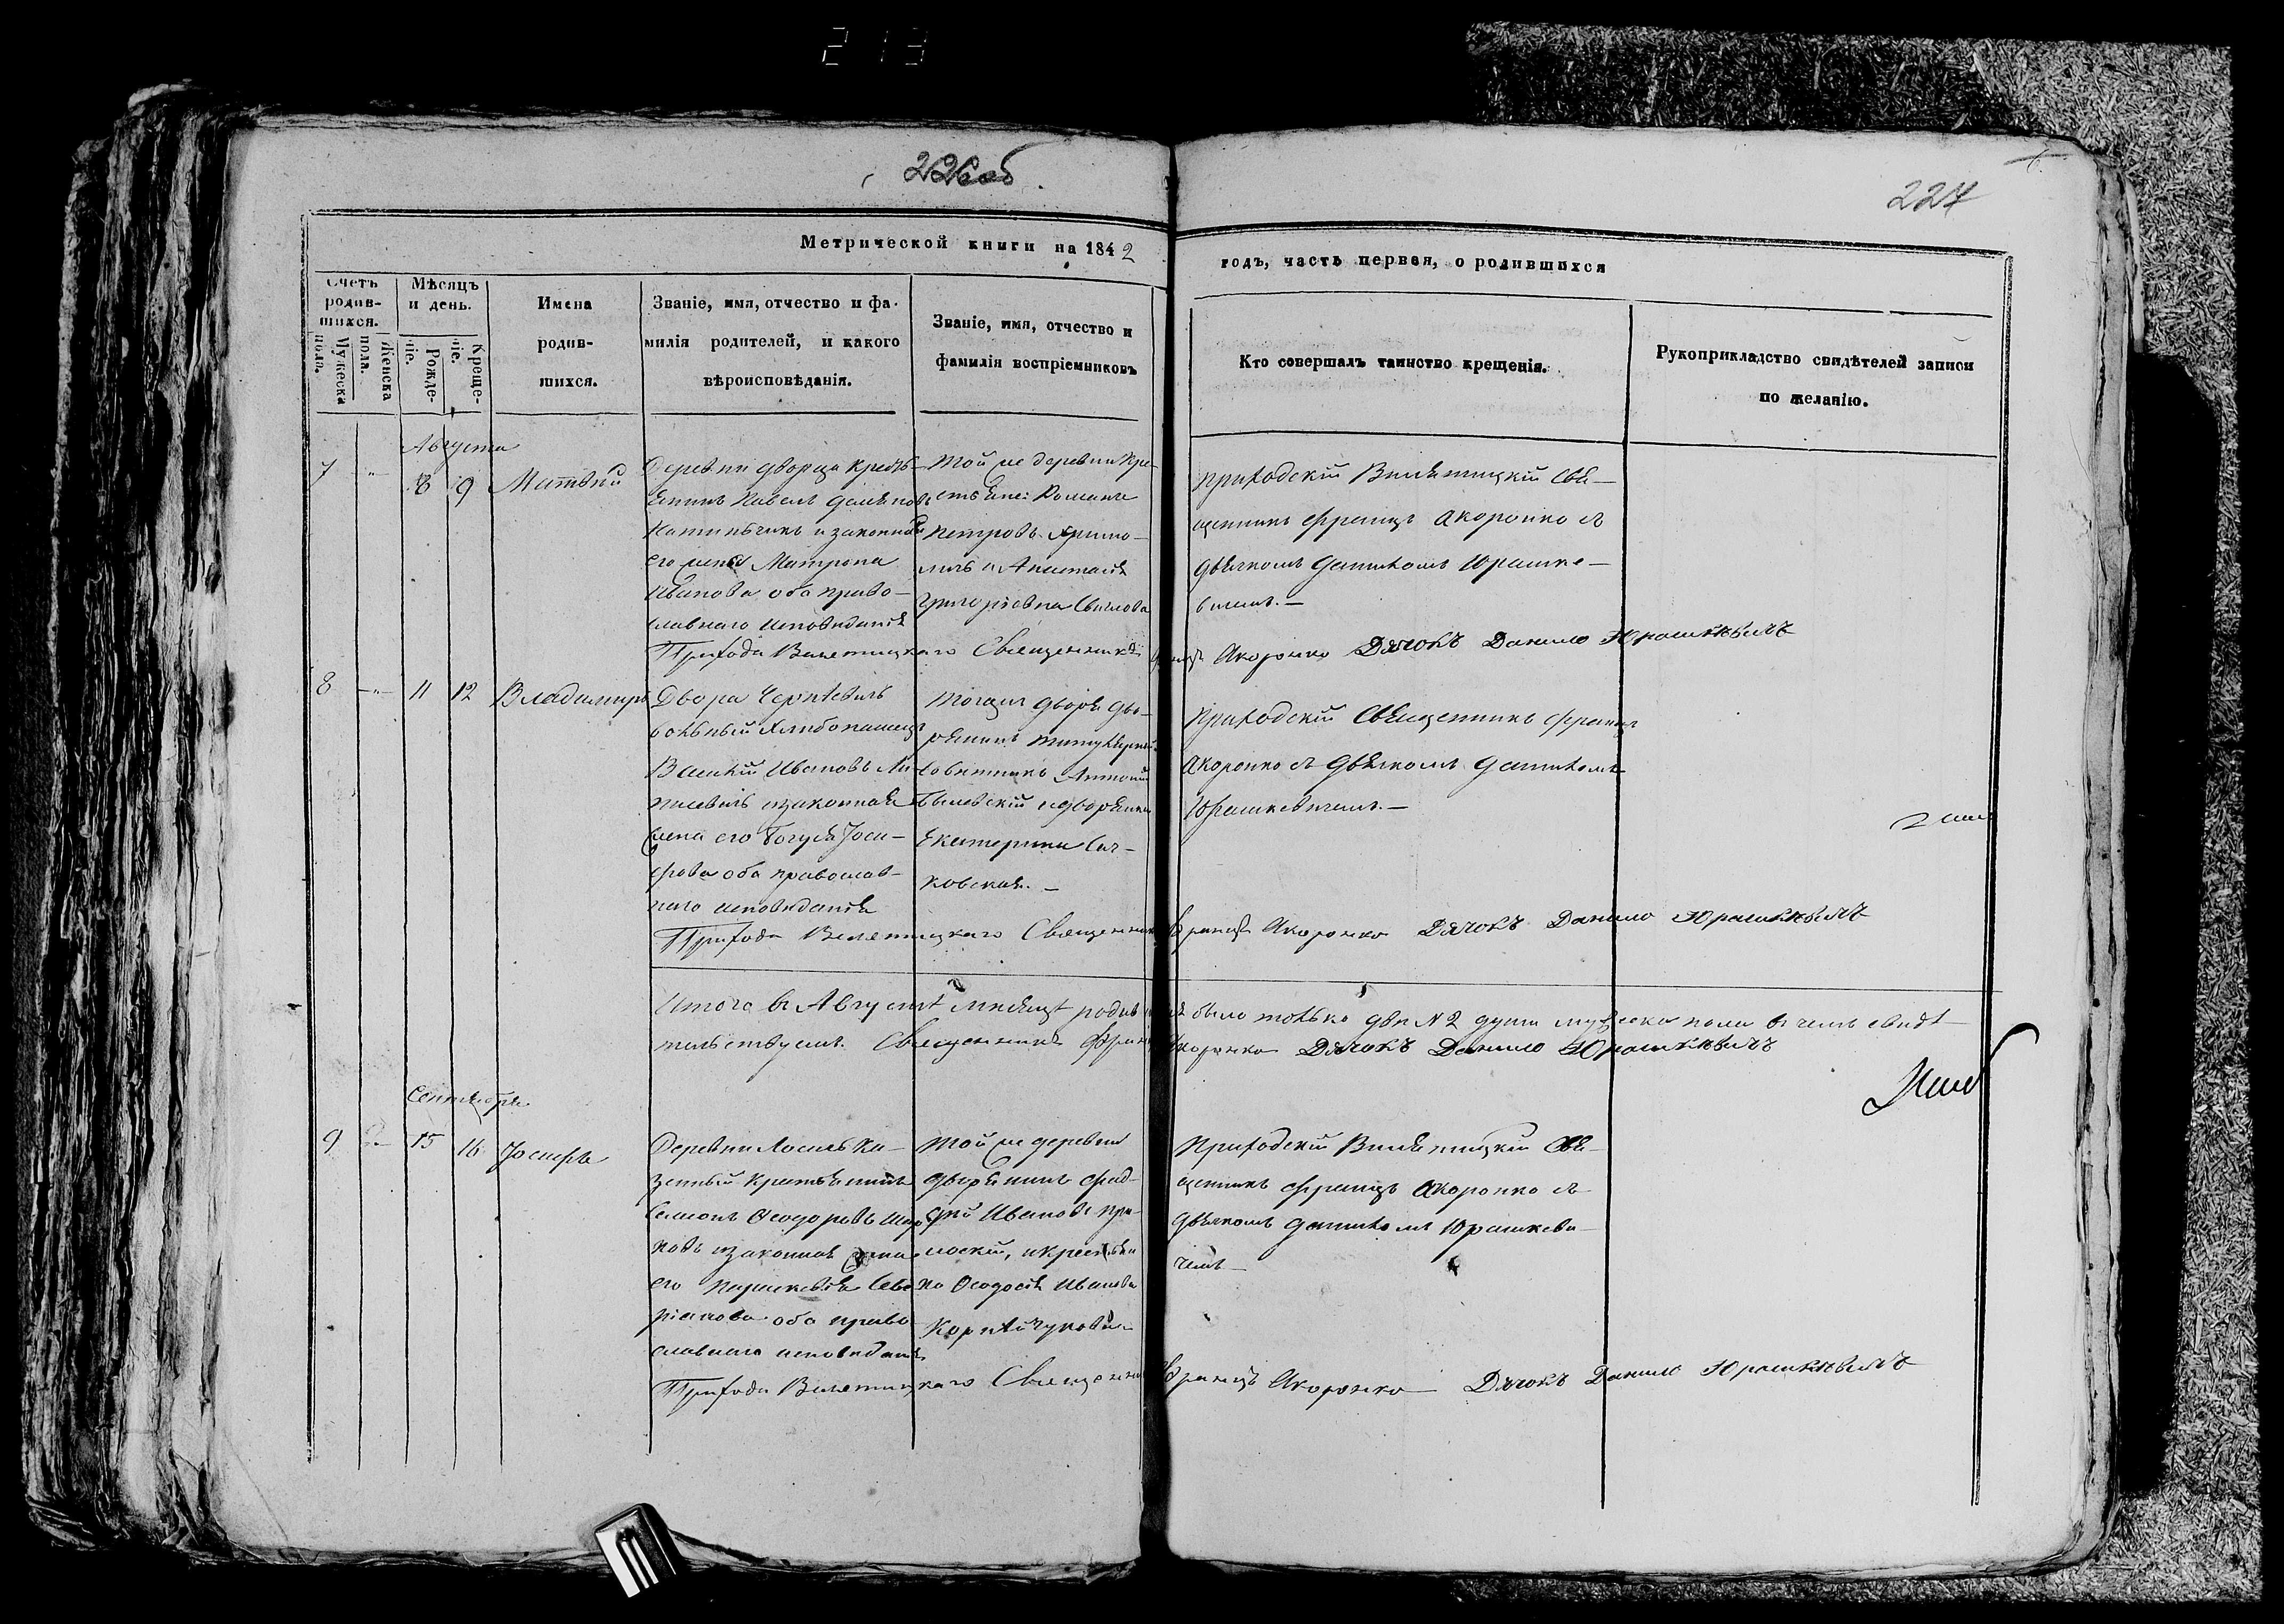 213
226 об
227
Метрической книги на 1842
годъ, часть первая, о родившихся
Счетъ родив-шихся.
Мужеска пола.
Женска пола.
Мѣсяцъ и день.
Рожде-ніе.
Креще-ніе.
Имена
родив-
шихся.
Званіе, имя, отчество и фа-
милія родителей, и какого
вѣроисповѣданія.
Званіе, имя, отчество и
фамилія воспріемниковъ
Кто совершалъ таинство крещенія.
Рукоприкладство свидѣтелей записи
по желанію.
Августа
7 " 8 9 Матвѣй
Деревни дворца кресть-
янинъ Павелъ
и законная
его жена Матрона
Иванова оба право-
славнаго исповѣданія
Той же деревни кре-
стьяне: Романъ
Петровъ
и Анастасія
Григоріевна
Приходскій Вилятицкій Свя-
щенникъ Францъ Акоронко съ
дьячкомъ Даниломъ Юрашке-
вичемъ.—
Прихода Вилятицкаго Священникъ Францъ Акоронко Дячокъ Данило Юрашкевичъ
8 " 11 12 Владимиръ
Двора Черневичъ
вольный хлибопашецъ
Василій Ивановъ
и законная
жена его Богуся Іоси-
фова оба православ-
наго исповѣданія
Тогожъ двора дво-
рянинъ титулярный
Совѣтникъ Антоній
и дворянка
Екатерина
ковская.—
Приходскій Священникъ Францъ
Акоронко съ дьячкомъ Даниломъ
Юрашкевичемъ.—
Прихода Вилятицкаго Священникъ Францъ Акоронко Дячокъ Данило Юрашкевичъ
Итого въ Августѣ мѣсяцѣ родившихся было только двѣ № 2 души мужеска пола въ чемъ свидѣ-
тельствуемъ. Священникъ Францъ Акоронко Дячокъ Данило Юрашкевичъ
Сентября
9 15 16 Іосифъ
Деревни Лосичъ ка-
зенный крестьянинъ
Семіонъ Ѳеодоровъ
и законная жена
его Параскевія Севе-
ріанова оба право-
славнаго исповѣданія
Той же деревни
дворянинъ Фад-
дей Ивановъ
и крестьян-
ка Ѳеодосія Иванова
Приходскій Вилятицкій Свя-
щенникъ Францъ Акоронко съ
дьячкомъ Даниломъ Юрашкеви-
чемъ—
Прихода Вилятицкаго Священникъ Францъ Акоронко Дячокъ Данило Юрашкевичъ